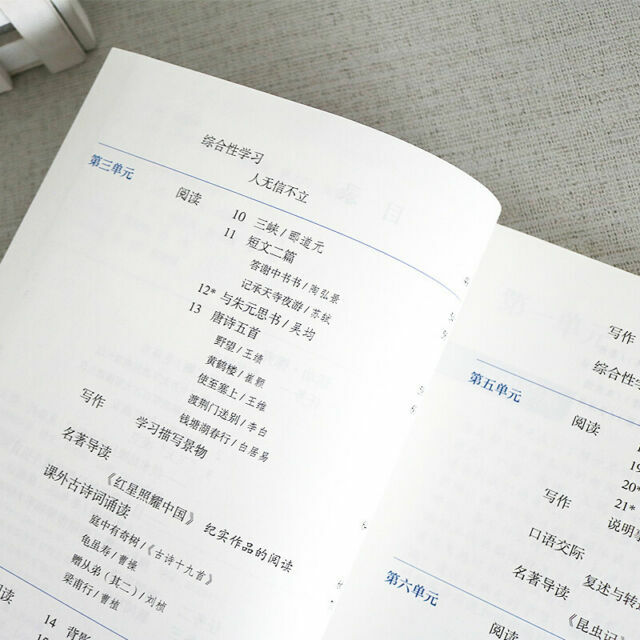 综合性学习
人无信不立
第三单元
阅读
10 三峡/郦道元
11 短文二篇
答谢中书书/陶弘景
记承天寺夜游/苏轼
12* 与朱元思书/吴均
13 唐诗五首
野望/王绩
黄鹤楼/崔颢
使至塞上/王维
渡荆门送别/李白
钱塘湖春行/白居易
写作
学习描写景物
名著导读
《红星照耀中国》 纪实作品的阅读
课外古诗词诵读
庭中有奇树/《古诗十九首》
龟虽寿/曹操
赠从弟(其二)/刘桢
梁甫行/曹植
阅读
14 背影
写作
综合性
第五单元
阅读
19
20*
21*
写作
说明
口语交际
复述与转
名著导读
《昆虫记
第六单元
阅读